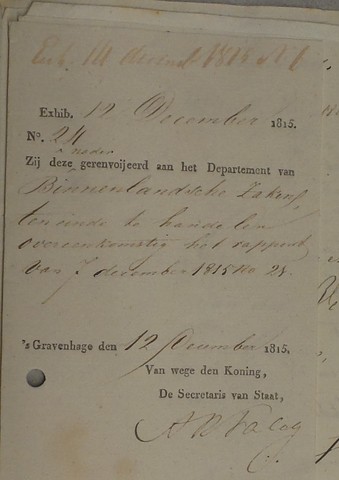 Exh. 14 decemb 1815 No 6
Exhib. 12 December 1815.
No. 24
nader
Zij deze gerenvoijeerd aan het Departement van
Binnenlandsche Zaken,
teneinde te handelen
overeenkomstig het rapport
van 7 december 1815 No 28.
's Gravenhage den 12 December 1815.
Van wege den Koning,
De Secretaris van Staat,